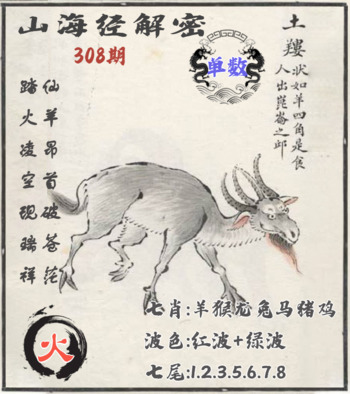 山海经解密
308期
单数
土羬
状如羊四角是食
人出崑崙之邱
仙羊昂首破苍茫
踏火凌空现瑞祥
火
七肖:羊猴龙兔马猪鸡
波色:红波+绿波
七尾:1.2.3.5.6.7.8